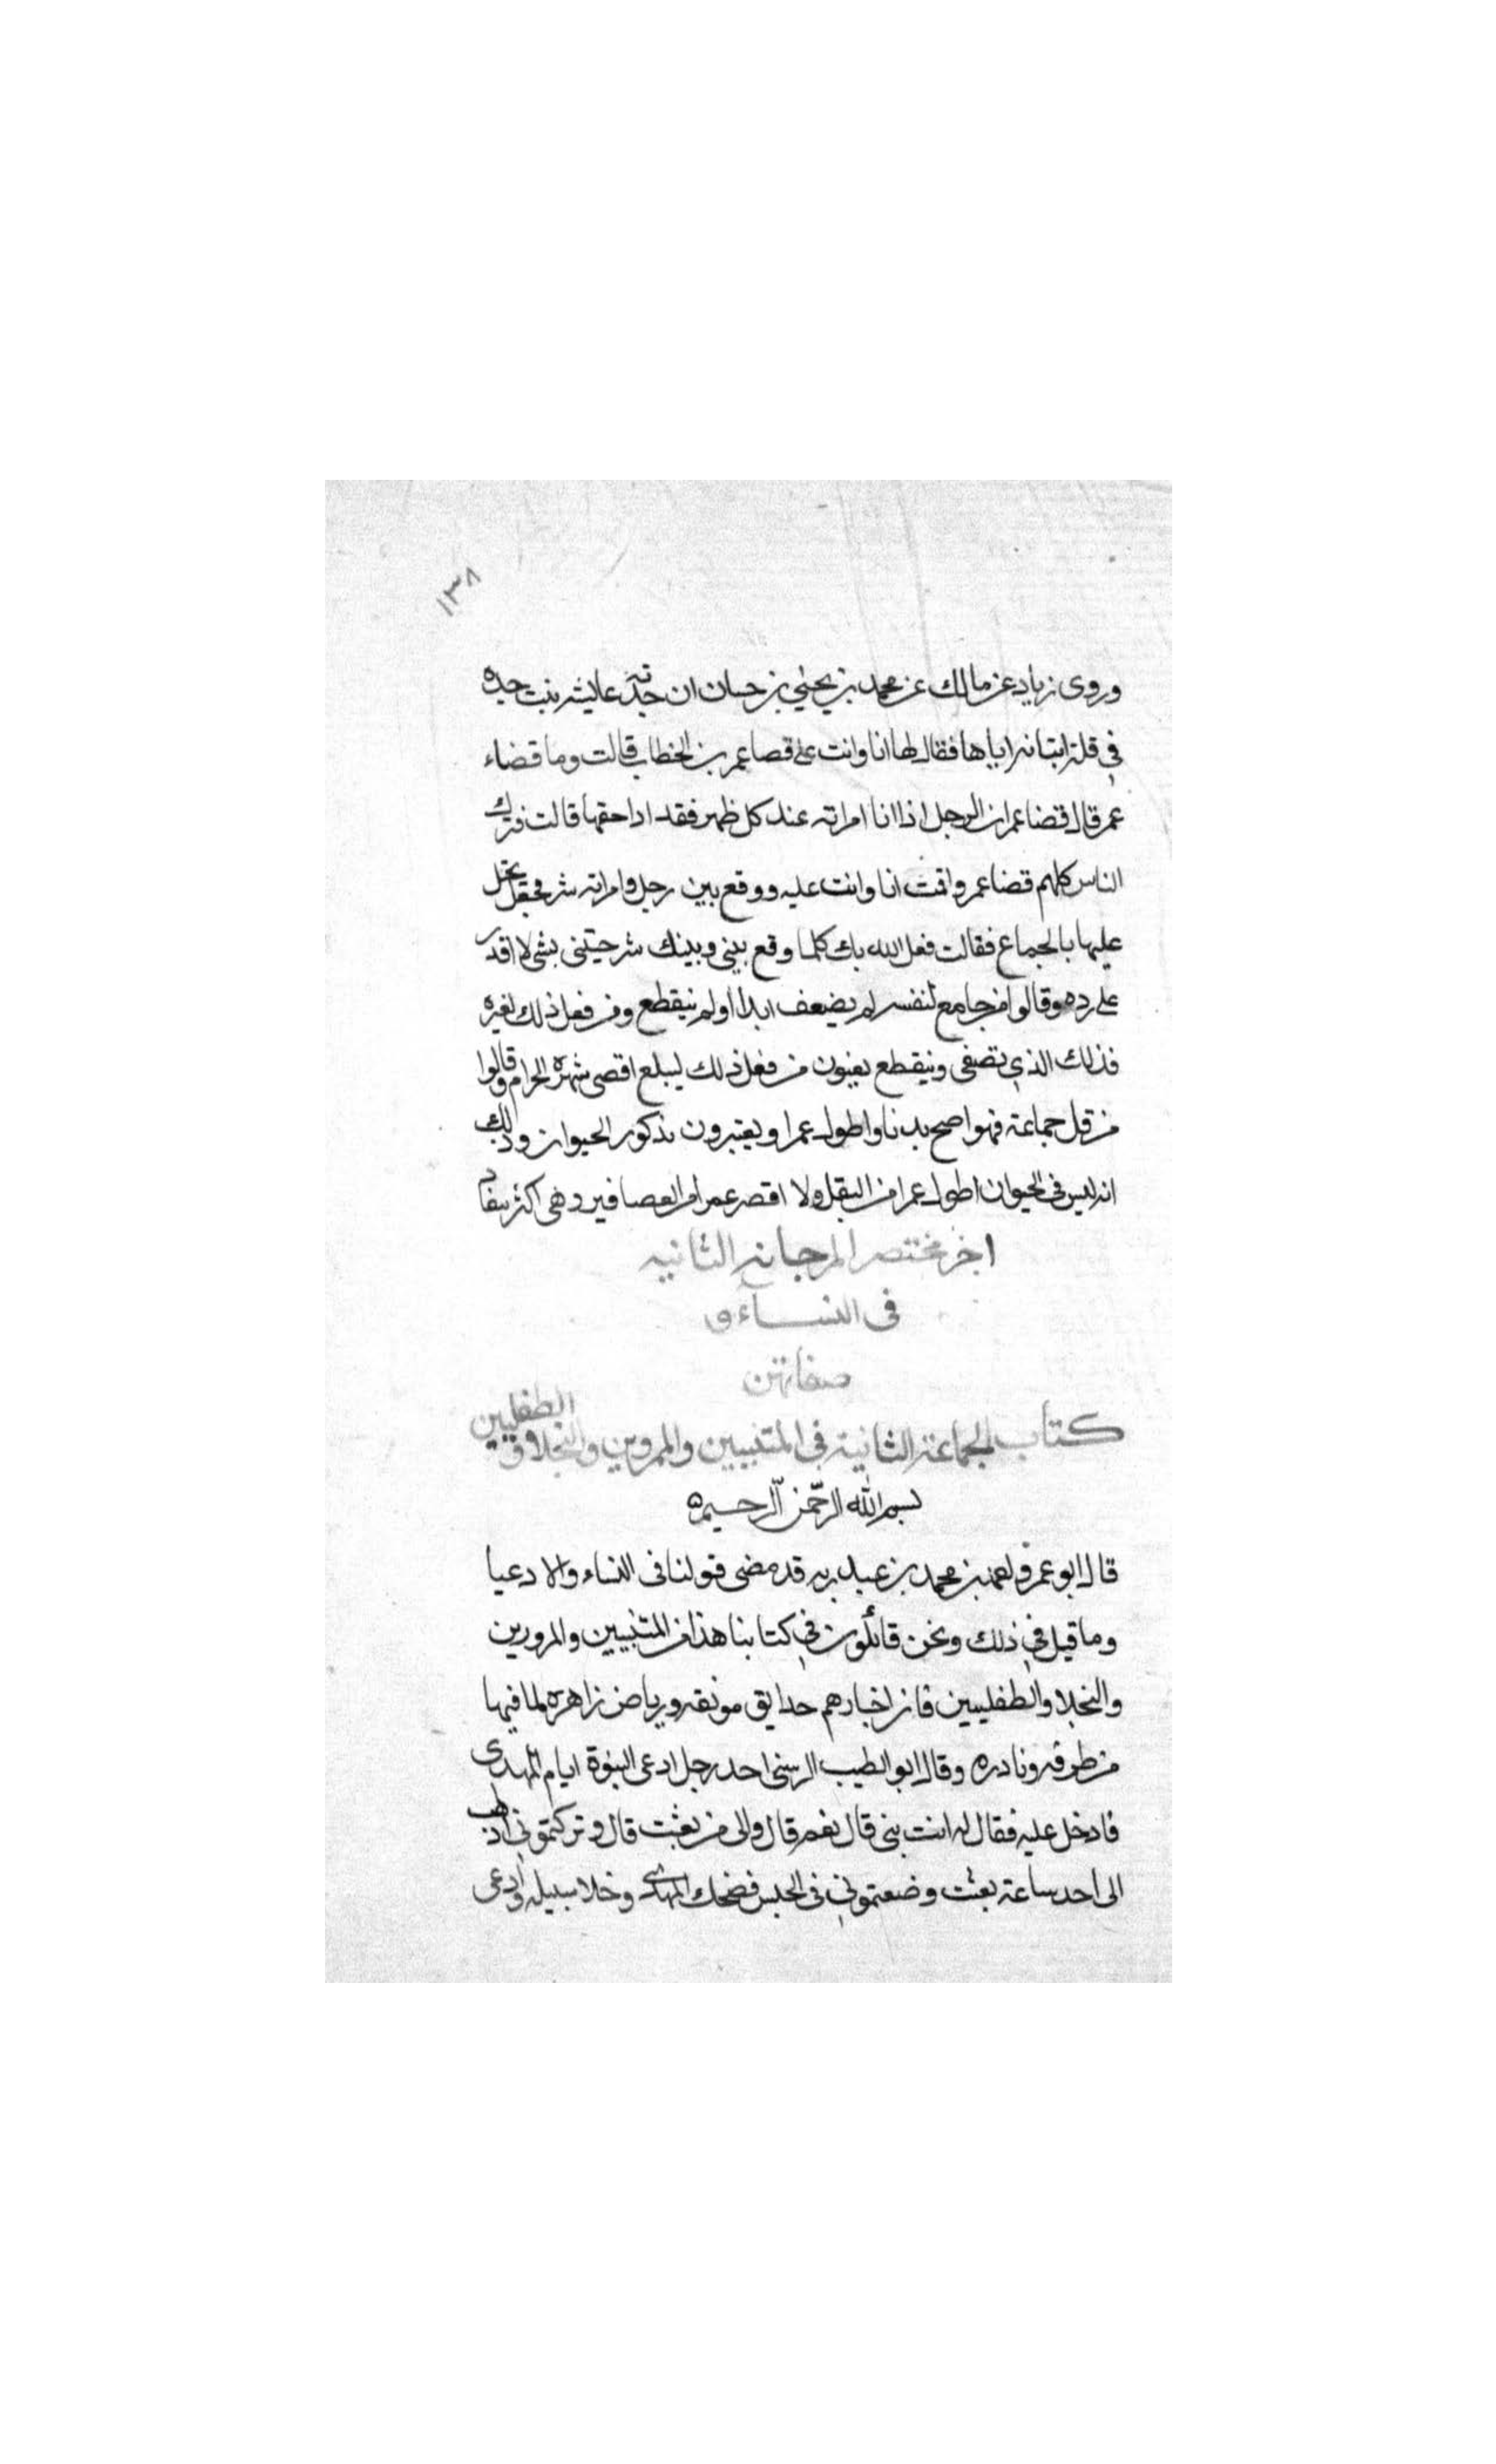 ١٣٨
وروى زياد عن مالك عن محمد بن يحيى بن حسان ان جدته عايشه بنت جده
في قلة اتيانه اياها فقال لها انا وانت على قضا عمر بن الخطاب قالت وما قضاء
عمر قال قضا عمر ان الرجل اذا اتا امراته عند كل طهر فقد ادا حقها قالت فترك
الناس كلهم قضا عمر واقمت انا وانت عليه ووقع بين رجل وامراته شر فجعل يحيل
عليها بالجماع فقالت فعل الله بك كلما وقع بيني وبينك شر جيتنى بشى لا اقدر
على رده وقالوا من جامع لنفسه لم يضعف ابدا اولم ينقطع ومن فعل ذلك لغيره
فذلك الذي تصفى وينقطع يعنون من فعل ذلك ليبلغ اقصى شهوة الحرام وقالوا
من قل جماعه فهو اصح بدنا واطول عمرا ويعتبرون بذكور الحيوان وذلك
انه ليس فى الحيوان اطول عمرا من البغل ولا اقصر عمرا من العصافير وهى اكثر سفاد
اخر مختصر المرجانه الثانيه
فى النساء و
صفاتهن
كتاب الجماعة الثانية في المتنبيين والممرورين والبخلا و الطفليين
بسم الله الرحمن الرحيم
قال ابو عمر احمد بن محمد بن عبد ربه قد مضى قولنا فى النساء والادعيا
وما قيل في ذلك ونحن قائلون في كتابنا هذا من المتنبيين والمرورين
والبخلا والطفليين فان اخبارهم حدايق مونقه ورياض زاهره لما فيها
من طرفه ونادره وقال ابو الطيب احد رجل ادعى النبوة ايام المهدى
فادخل عليه فقال له انت نبى قال نعم قال والى من بعثت قال وتركتمونى اذهب
الى احد ساعة بعثت وضعتمونى فى الحبس فضحك المهدى وخلا سبيله وادعى